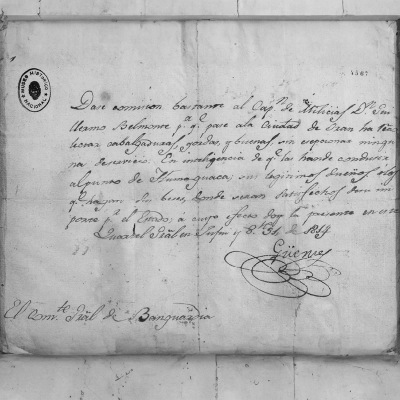 MUSEO HISTORICO NACIONAL
Dase comicion bastante al Capn. de Milicias Dn. Gui
llermo Belmonte pa. qe. pase ala Ciudad de Jran
cavalgaduras, gordas, y buenas sin ninguna
na deservicio. En inteligencia de qe. las hande conducir
al punto de Humaguaca; sus legitimos dueños
veces, donde seran satisfechos
porte pr. el Estado; a cuyo efecto doy la presente en este
Quartel Gral en Jujuy y
Güemes
El Comte. Gral de Banguardia